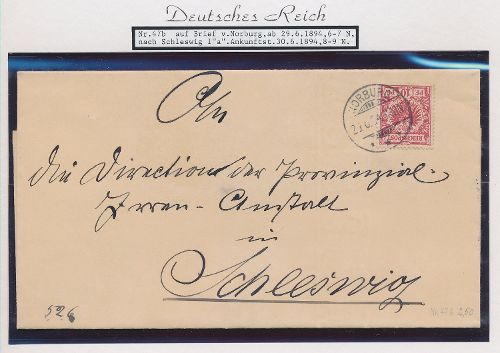 Deutsches Reich
Nr.47b auf Brief v.Norburg,ab 29.6.1894,6-7 N.
nach Schleswig 1"a".Ankunftst.30.6.1894,8-9 N.
An
die Direction der Provinzial-
Irren-Anstalt
in
Schleswig
NORBURG
REICHSPOST
10
526
Nr. 47b 2,50